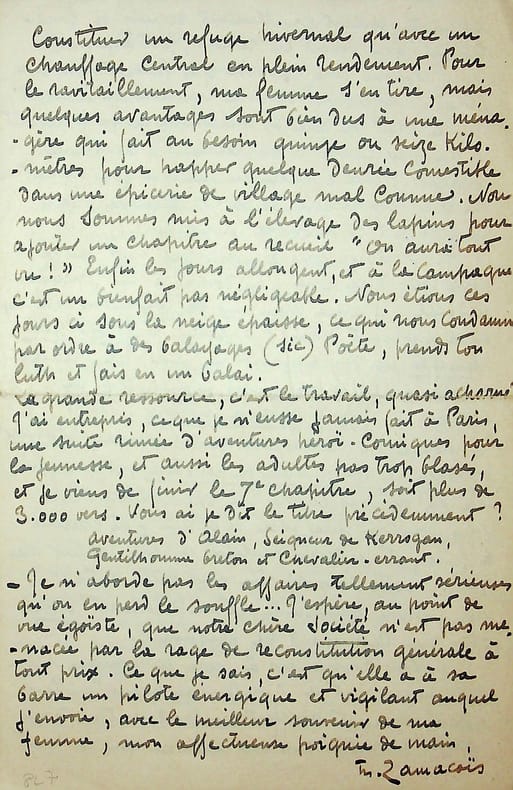 Constituer un refuge hivernal qu'avec un
chauffage central en plein rendement. Pour
le ravitaillement, ma femme s'en tire, mais
quelques avantages sont bien dus à une ména-
-gère qui fait au besoin quinze ou seize Kilo-
-mètres pour happer quelque Denrée Comestible
dans une épicerie de village mal Connue. Nous
nous sommes mis à l'élevage des lapins pour
ajouter un chapitre au recueil "On aura tout
vu !" Enfin les jours allongent, et à la Campagne
c'est un bienfait pas négligeable. Nous étions ces
jours ci sous la neige épaisse, ce qui nous Condamne
par ordre à des balayages (sic) Poète, prends ton
luth et fais en un balai.
La grande ressource, c'est le travail, quasi acharné
J'ai entrepris, ce que je n'eusse jamais fait à Paris,
une suite rimée d'aventures héroï-Comiques pour
la jeunesse, et aussi les adultes pas trop blasés,
et je viens de finir le 7e chapitre, soit plus de
3.000 vers. Vous ai je dit le titre précédemment ?
Aventures d'Alain, Seigneur de Kerrogan,
Gentilhomme breton et Chevalier-errant.
- Je n'aborde pas les affaires tellement sérieuses
qu'on en perd le souffle... J'espère, au point de
vue égoïste, que notre chère Société n'est pas me-
-nacée par la rage de reconstitution générale à
tout prix. Ce que je sais, c'est qu'elle a à sa
barre un pilote énergique et vigilant auquel
j'envoie, avec le meilleur souvenir de ma
femme, mon affectueuse poignée de main,
M. Zamacoïs